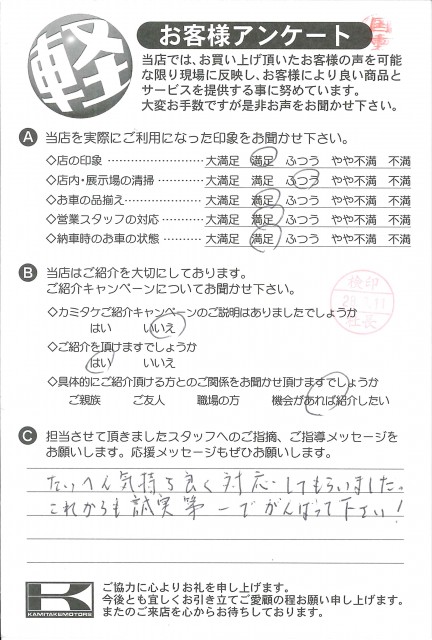 軽
お客様アンケート
当店では、お買い上げ頂いたお客様の声を可能
な限り現場に反映し、お客様により良い商品と
サービスを提供する事に努めています。
大変お手数ですが是非お声をお聞かせ下さい。
A 当店を実際にご利用になった印象をお聞かせ下さい。
◇店の印象 大満足 満足 ふつう やや不満 不満
◇店内・展示場の清掃 大満足 満足 ふつう やや不満 不満
◇お車の品揃え 大満足 満足 ふつう やや不満 不満
◇営業スタッフの対応 大満足 満足 ふつう やや不満 不満
◇納車時のお車の状態 大満足 満足 ふつう やや不満 不満
B 当店はご紹介を大切にしております。
ご紹介キャンペーンについてお聞かせ下さい。
◇カミタケご紹介キャンペーンのご説明はありましたでしょうか
はい いいえ
◇ご紹介を頂けますでしょうか
はい いいえ
◇具体的にご紹介頂ける方とのご関係をお聞かせ頂けますでしょうか
ご親族 ご友人 職場の方 機会があれば紹介したい
検印
社長
C 担当させて頂きましたスタッフへのご指摘、ご指導メッセージを
お願いします。応援メッセージもぜひお願いします。
たいへん気持ち良く対応してもらいました。
これからも誠実第一でがんばって下さい!
KAMITAKEMOTORS
ご協力に心よりお礼を申し上げます。
今後とも宜しくお引き立てご愛顧の程お願い申し上げます。
またのご来店を心からお待ちしております。